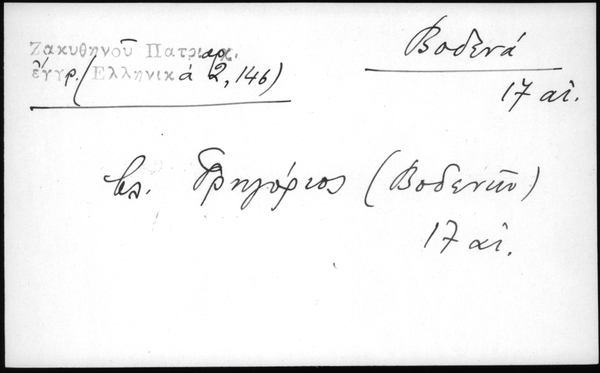 Ζακυθηνοῦ Πατριαρχ.
ἔγγρ. (Ἑλληνικά 2, 146)
Βοδενά
17 αἰ.
βλ. Γρηγόριος (Βοδενῶν)
17 αἰ.